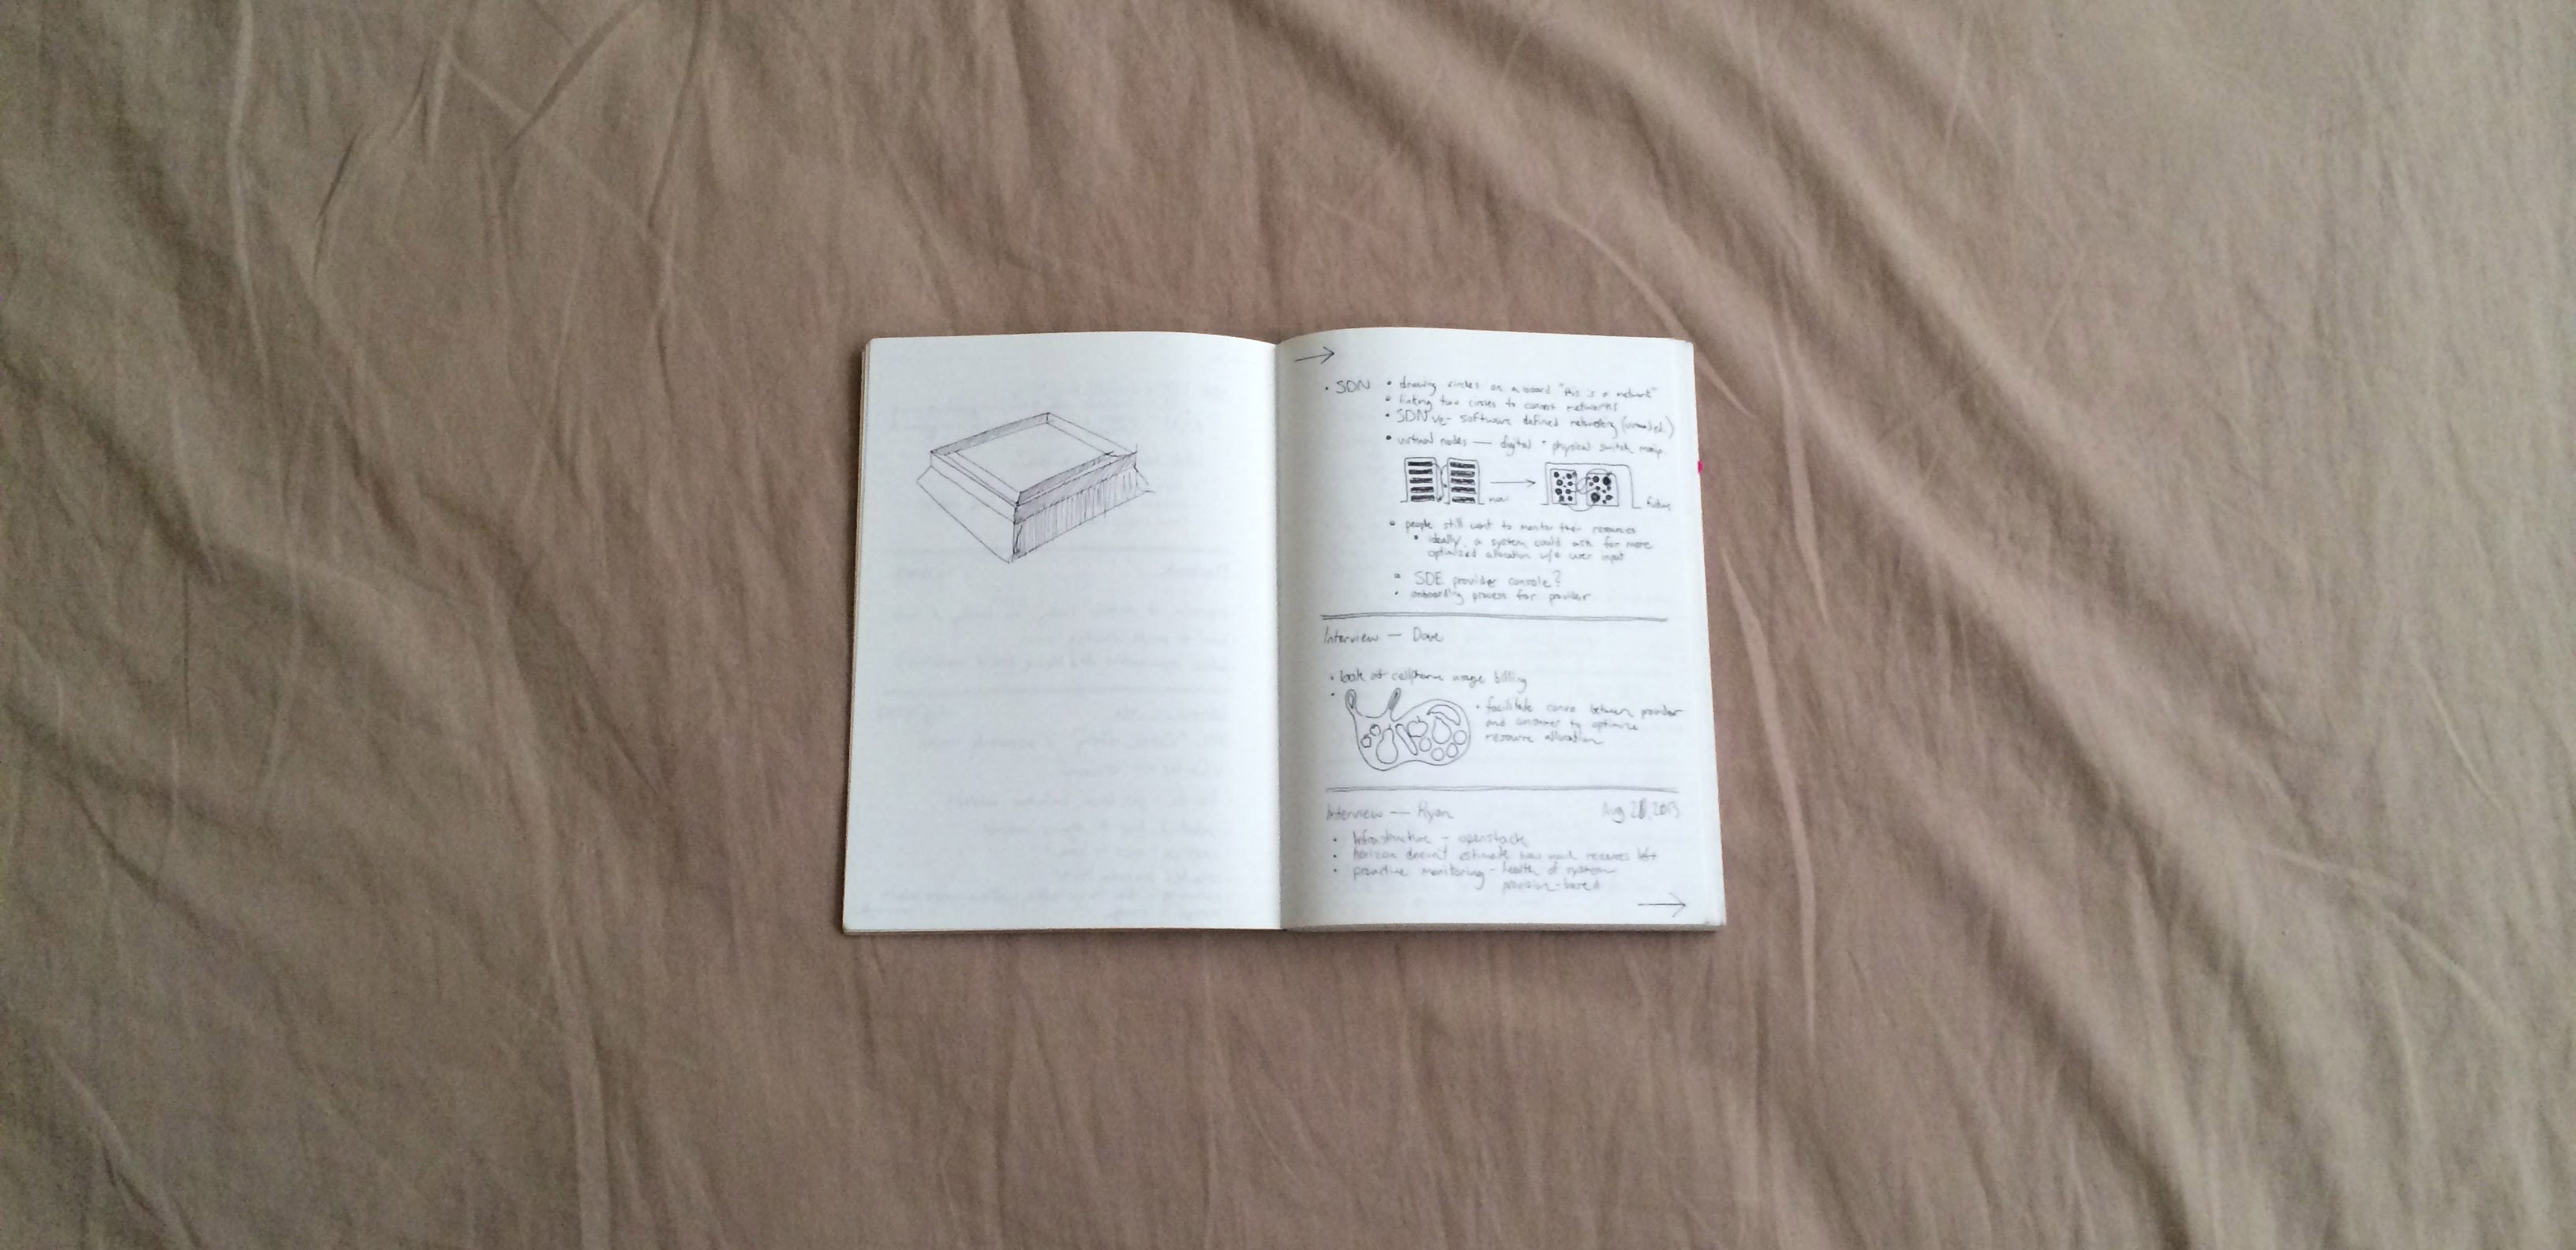 • SDN • drawing circles on a board "this is a network"
• linking two circles to connect networks
• SDN VE - software defined networking
• virtual nodes — digital • physical switch manip.
now future
• people still want to monitor their resources
• ideally, a system could ask for more
optimized allocation w/o user input
• SDE provider console?
• onboarding process for provider
Interview — Dave
• look at cellphone usage billing
• facilitate convo between provider
and consumer to optimize
resource allocation
Interview — Ryan Aug 2 2013
• Infrastructure - openstack
• horizon doesn't estimate how much resources left
• proactive monitoring - health of system
provision-based